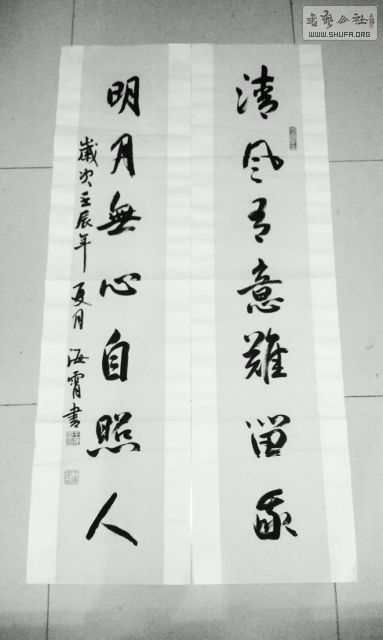 清風有意難留我
明月無心自照人
歲次壬辰年 夏月 海霄書
書藝公社
WWW.SHUFA.ORG